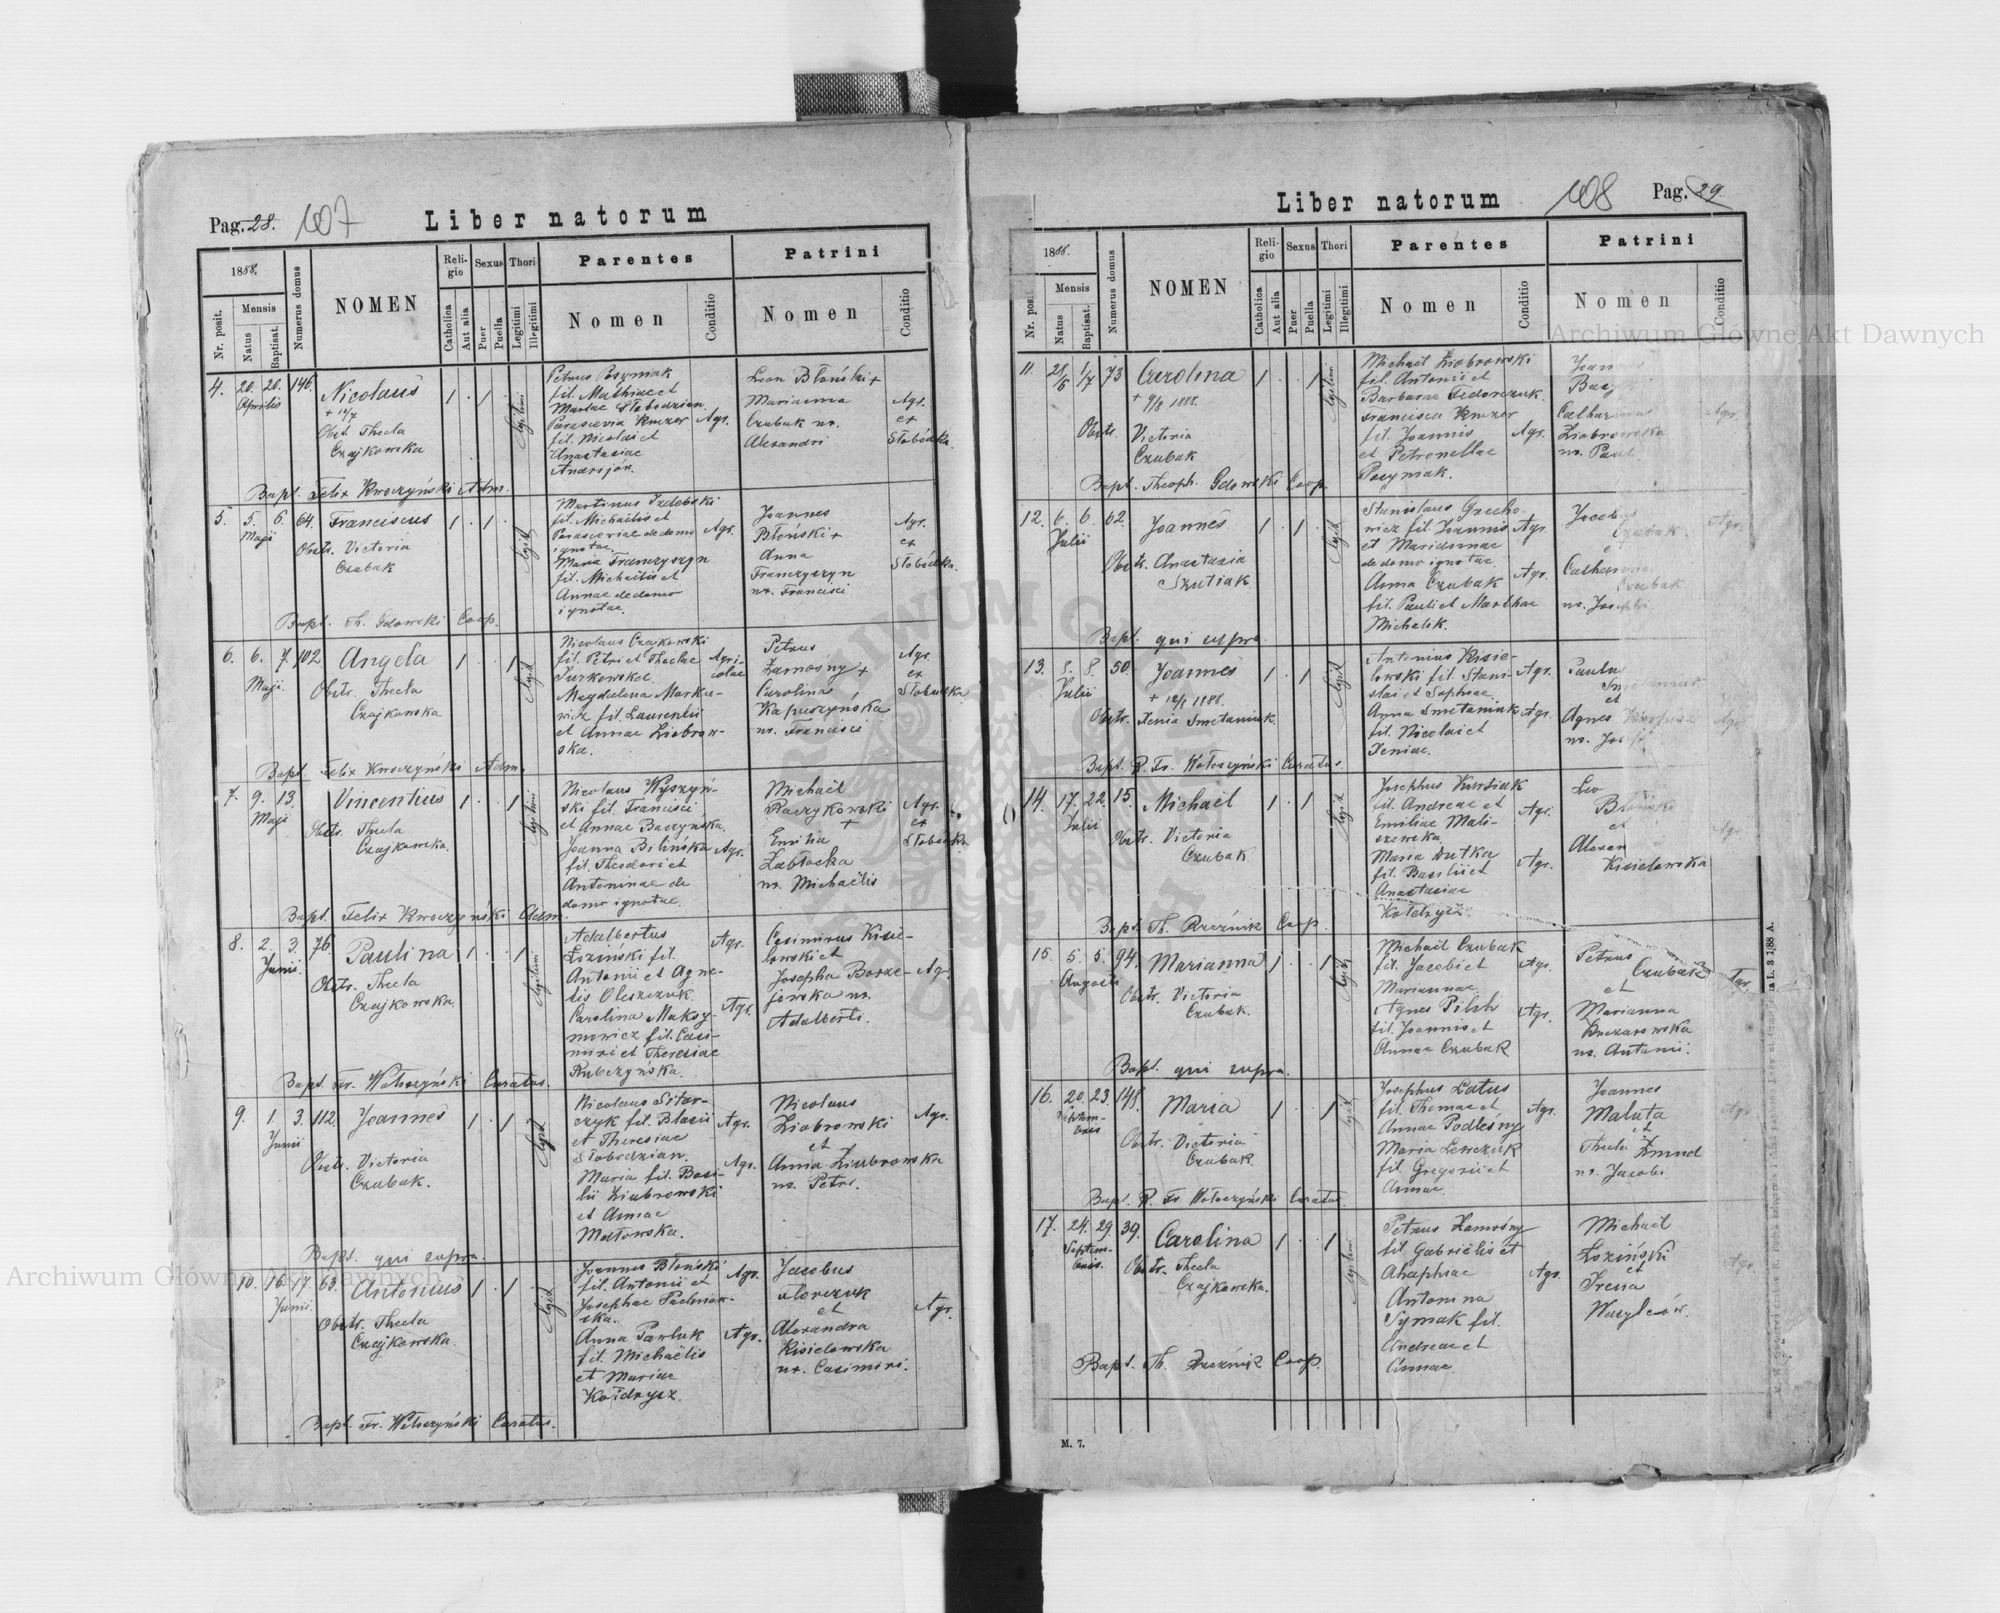 Pag. 28. 107
Liber natorum
1888.
Nr. posit.
Mensis
Natus
Baptisat.
Numerus domus
NOMEN
Religio
Catholica
Aut alia
Sexus
Puer
Puella
Thori
Legitimi
Illegitimi
Parentes
Nomen
Conditio
Patrini
Nomen
Conditio
4. 20. 20. 146. Nicolaus 1 1
Aprilis
Obst. Thecla
Czajkowska
Petrus Posymak
fil. Mathiae et
Mariae Słobodzian
Parascevia Knezer Agr.
fil. Nicolai et
Anastasiae
Andrijów.
Leon Błoński +
Marianna
Czubak ux.
Alexandri
Agr.
et
Słobódka.
Bapt. Felix Kwoczyński Adm.
5. 5. 6. 64. Franciscus 1 1
Maji
Obstr. Victoria
Czubak
Martinus
fil. Michaëlis et
Parasceviae de domo Agr.
ignotae.
Maria Franczyszyn
fil. Michaëlis et
Annae de domo
ignotae.
Joannes
Błoński +
Anna
Franczyszyn
ux. Francisci
Agr.
et
Słobódka.
Bapt. Th. Gdowski Coop.
6. 6. 7. 102. Angela 1 1
Maji.
Obstr. Thecla
Czajkowska
Nicolaus Czajkowski
fil. Petri et Theclae Agricolae
Turkowskie.
Magdalena Markiewicz
fil. Laurentii
et Annae Ziobrowska.
Petrus
Zarnośny +
Carolina
Kapuszyńska
ux. Francisci
Agr.
et
Słobudka
Bapt. Felix Kwoczyński Adm.
7. 9. 13. Vincentius 1 1
Maji
Obstr. Thecla
Czajkowska.
Nicolaus Wyszyński
fil. Francisci
et Annae Baczyńska.
Joanna Bilińska Agr.
fil. Theodori et
Antoninae de
domo ignotae.
Michaël
Raczykowski
+
Emilia
Zabłocka
ux. Michaëlis
Agr.
et
Słobódka
Bapt. Felix Kwoczyński Adm.
8. 2. 3. 76. Paulina 1 1
Junii.
Obstr. Thecla
Czajkowska.
Adalbertus Agr.
Łoziński fil.
Antonii et Agnetis
Oleszczuk.
Carolina Maksymowicz Agr.
fil. Casimiri
et Theresiae
Rubczyńska.
Casimirus Kisielowski et
Josepha Borzejowska ux. Agr.
Adalberti.
Bapt. Fr. Wołoszyński Curatus.
9. 1. 3. 112. Joannes 1 1
Junii
Obstr. Victoria
Czubak.
Nicolaus Sitarczyk
fil. Blasii Agr.
et Theresiae
Słobodzian.
Maria fil. Basilii Agr.
Ziubrowski
et Annae
Matowska.
Nicolaus
Ziobrowski
et
Anna Ziubrowska
ux. Petri.
Agr.
Bapt. qui supra.
10. 16. 17. 63. Antonius 1 1
Junii.
Obstr. Thecla
Czajkowska.
Joannes Błoński
fil. Antonii et Agr.
Josephae
Anna Pawluk Agr.
fil. Michaëlis
et Mariae
Kołdrysz.
Jacobus
et
Alexandra
Kisielowska
ux. Casimiri.
Agr.
Bapt. Fr. Wołoszyński Curatus.
108 Pag. 29
Liber natorum
1888.
Nr. posi
Mensis
Natus
Baptisat.
Numerus domus
NOMEN
Religio
Catholica
Aut alia
Sexus
Puer
Puella
Thori
Legitimi
Illegitimi
Parentes
Nomen
Conditio
Patrini
Nomen
Conditio
11. 21/6 1/7 73 Carolina 1 1
+ 9/8 1888.
Obstr. Victoria
Czubak
Michaël Ziobrowski
fil. Antonii et
Barbarae Fedorczuk.
Francisca Knezer
fil. Joannis Agr.
et Petronellae
Posymak.
Joan
Catharina
Ziobrowska
ux. Pauli
Agr.
Bapt. Theoph. Gdowski Coop.
12. 6. 6. 62. Joannes 1 1
Julii
Obstr. Anastasia
Szutiak
Stanislaus Grechowicz
fil. Joannis Agr.
et Mariannae
de domo ignotae.
Anna Czubak Agr.
fil. Pauli et Marthae
Michalek.
Jacobus
Czubak
et
Catharina
Czubak
ux. Josephi.
Agr.
Bapt. qui supra
13. 8. 8. 50. Joannes 1 1
Julii
+ 12/8 1888.
Obstr. Xenia Smetaniuk.
Antonius Kisielowski
fil. Stanislai Agr.
et Sophiae.
Anna Smetaniuk Agr.
fil. Nicolai et
Xeniae.
Paulu
Smetaniuk
et
Agnes
ux. Jos
Bapt. R. Fr. Wołoszyński Curatus.
14. 17. 22. 15. Michaël 1 1
Julii
Obstr. Victoria
Czubak
Josephus Kurdiak
fil. Andreae et Agr.
Emiliae Maliszewska.
Maria Dutka
fil. Basilii et Agr.
Anastasiae
Kołdrysz.
Leo
Błoński
et
Alexan
Kisielowska
Agr.
Bapt. Th. Rzeźnik Coop
15. 5. 5. 94. Marianna 1 1
Augusti
Obstr. Victoria
Czubak.
Michaël Czubak
fil. Jacobi et Agr.
Mariannae.
Agnes Pilch
fil. Joannis et Agr.
Annae Czubak
Petrus
Czubak
et
Marianna
ux. Antonii.
Bapt. qui supra.
16. 20. 23. 148. Maria 1 1
Septembris
Obstr. Victoria
Czubak
Josephus Latus
fil. Thomae et Agr.
Annae Podleśny
Maria Leszczuk
fil. Gregorii et
Annae
Joannes
Maluta
et
Thecla Żmud
ux. Jacobi.
Agr.
Bapt. R. Fr. Wołoszyński Curatus.
17. 24. 29. 39. Carolina 1 1
Septembris.
Obstr. Thecla
Czajkowska.
Petrus Zamośny
fil. Gabriëlis et
Ahaphiae Agr.
Antonina
Symak fil.
Andreae et
Annae.
Michaël
Łoziński
et
Irena
Wasylców.
Agr.
Bapt. Th. Rzeźnik Coop.
M. 7.
Archiwum Główne Akt Dawnych
Archiwum Główne Akt Dawnych